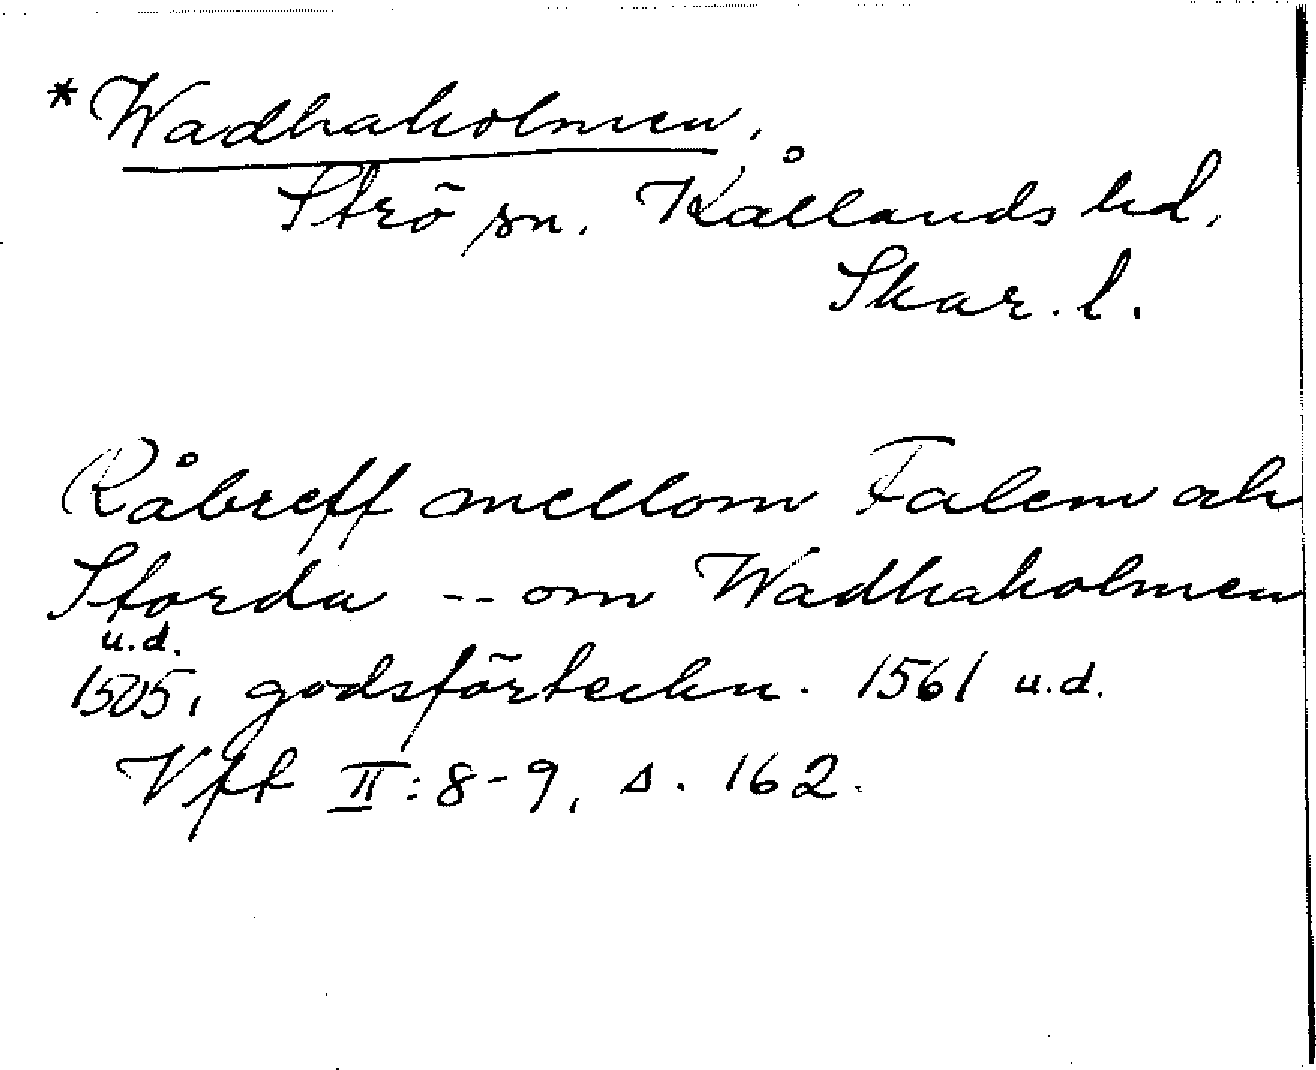 *Wadhaholmen.
Strö sn. Kållands hd.
Skar. l.
Råbreff mellom Falem ah
Storda -- om Wadhaholmen
u.d.
1505, godsförteckn. 1561 u.d.
Vft II: 8-9, s. 162.